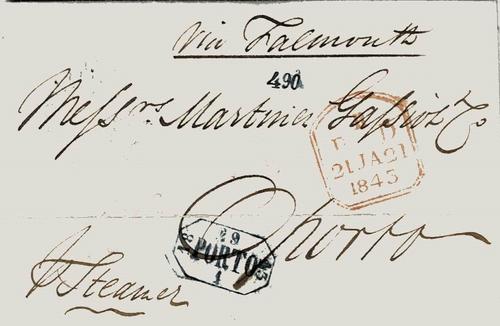 via Falmouth
490
Messrs. Martinez Gassiot & Co
P D
21 JA 21
1843
Oporto
29
18 PORTO 43
1
p Steamer